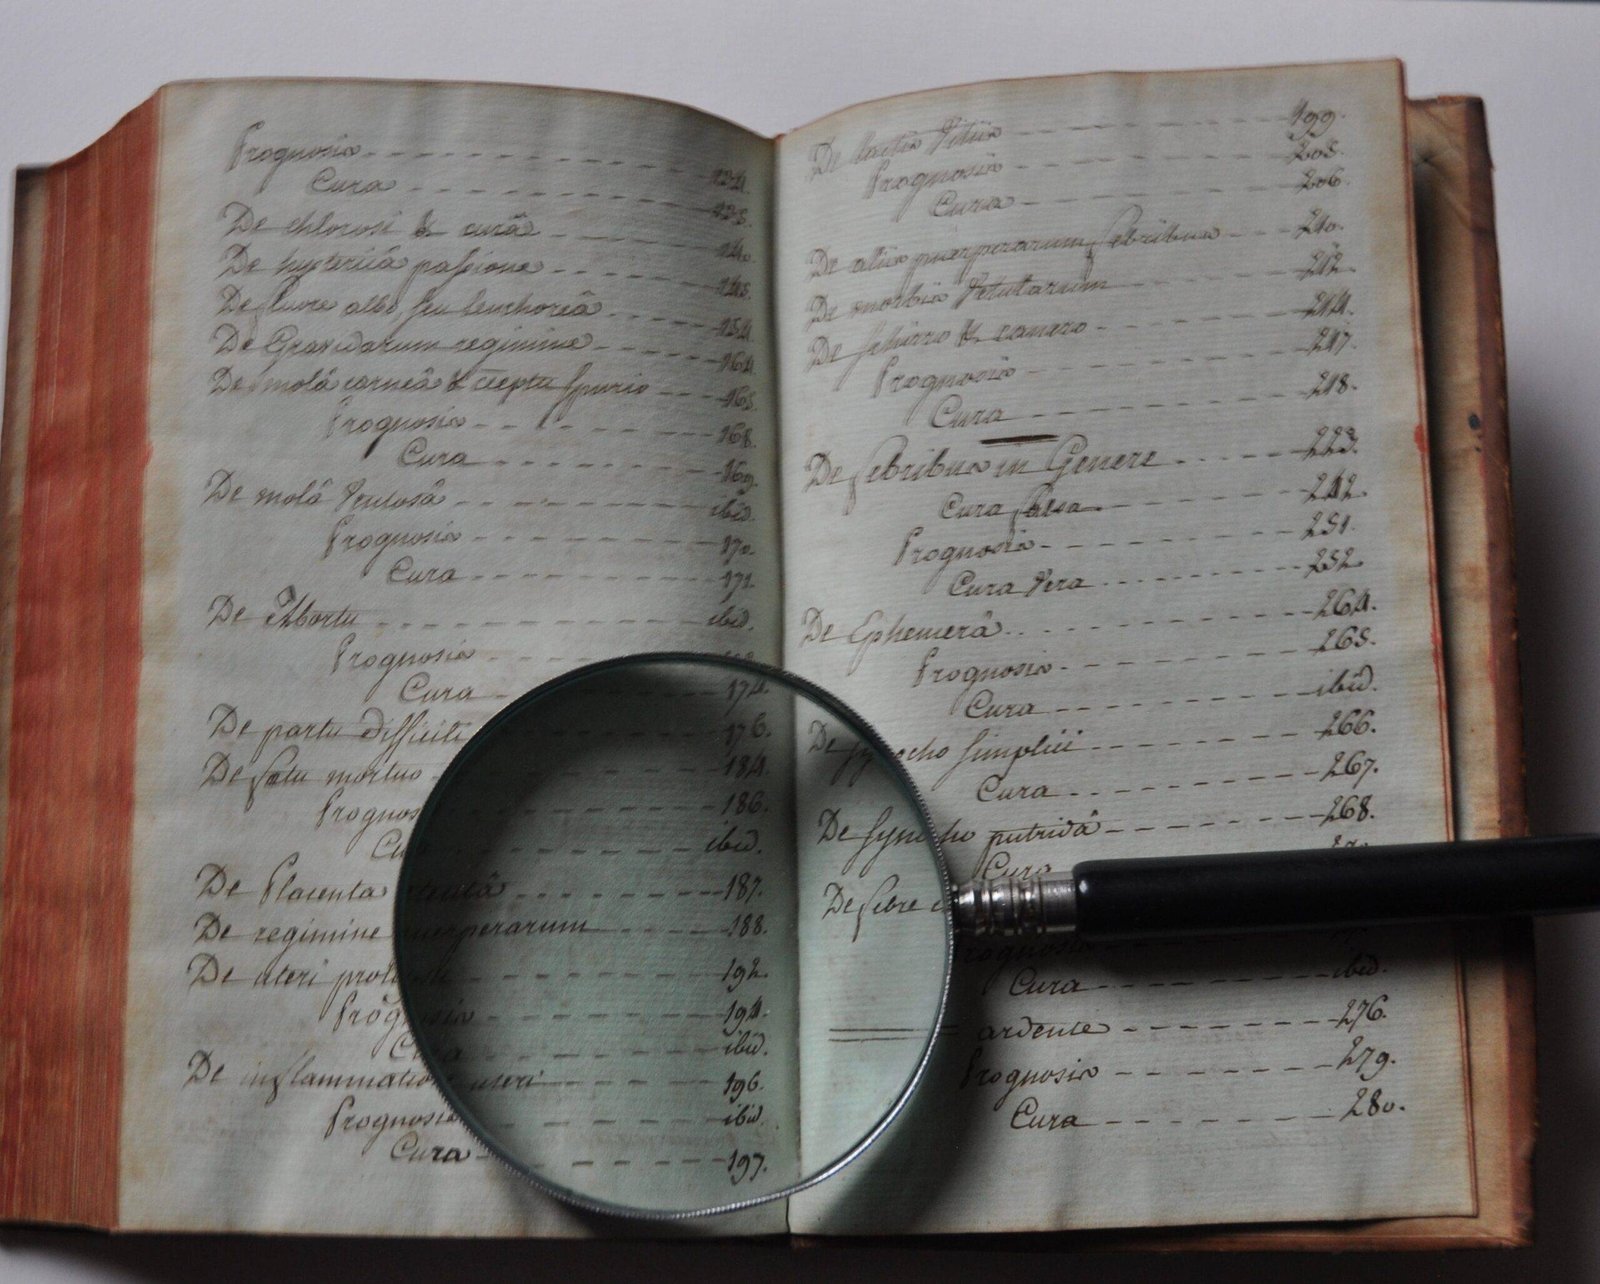 Prognosis - - - - - - - - - - - -
Cura - - - - - - - - - - - -
De chlorosi & curâ - - - - - - -
De hystericâ passione - - - - - -
De fluore albo seu leuchoreâ - - - -
De Gravidarum regimine - - - - - 164.
De molâ carneâ & spurio - - - 165.
Prognosis - - - - - - - 168.
Cura - - - - - - - 169.
De molâ Ventosâ - - - - - - - ibid.
Prognosis - - - - - - - 170.
Cura - - - - - - - 171.
De Abortu - - - - - - - - - ibid.
Prognosis - - -
Cura - - - 174.
De partu difficili 176.
De fœtu mortuo - - - - 184.
Prognos - - - 186.
Cu - - - ibid.
De Placenta - - - 187.
De regimine puerperarum - - - 188.
De uteri - - - 192.
Prognosis - - - 194.
Cura - - - ibid.
De inflammatione uteri - - - 196.
Prognosis - - - ibid.
Cura - - - - - - 197.
De lactis Vitiis - - - - - - - 199.
Prognosis - - - - - - - 205.
Cura - - - - - - - 206.
De aliis puerperarum febribus - - - 210.
De morbis Vetularum - - - - - 212.
De schirro & cancro - - - - - 214.
Prognosis - - - - - - - 217.
Cura - - - - - - - 218.
De febribus in Genere - - - - - 223.
Cura falsa - - - - - - 242.
Prognosis - - - - - - - 251.
Cura Vera - - - - - - - 252.
De Ephemerâ - - - - - - - 264.
Prognosis - - - - - - - 265.
Cura - - - - - - - ibid.
De synocho simplici - - - - - 266.
Cura - - - - - - - 267.
De synocho putridâ - - - - - - 268.
Cura
De febre
Prognosis
Cura - - - - - - - ibid.
ardente - - - - - - 276.
Prognosis - - - - - - 279.
Cura - - - - - - - 280.